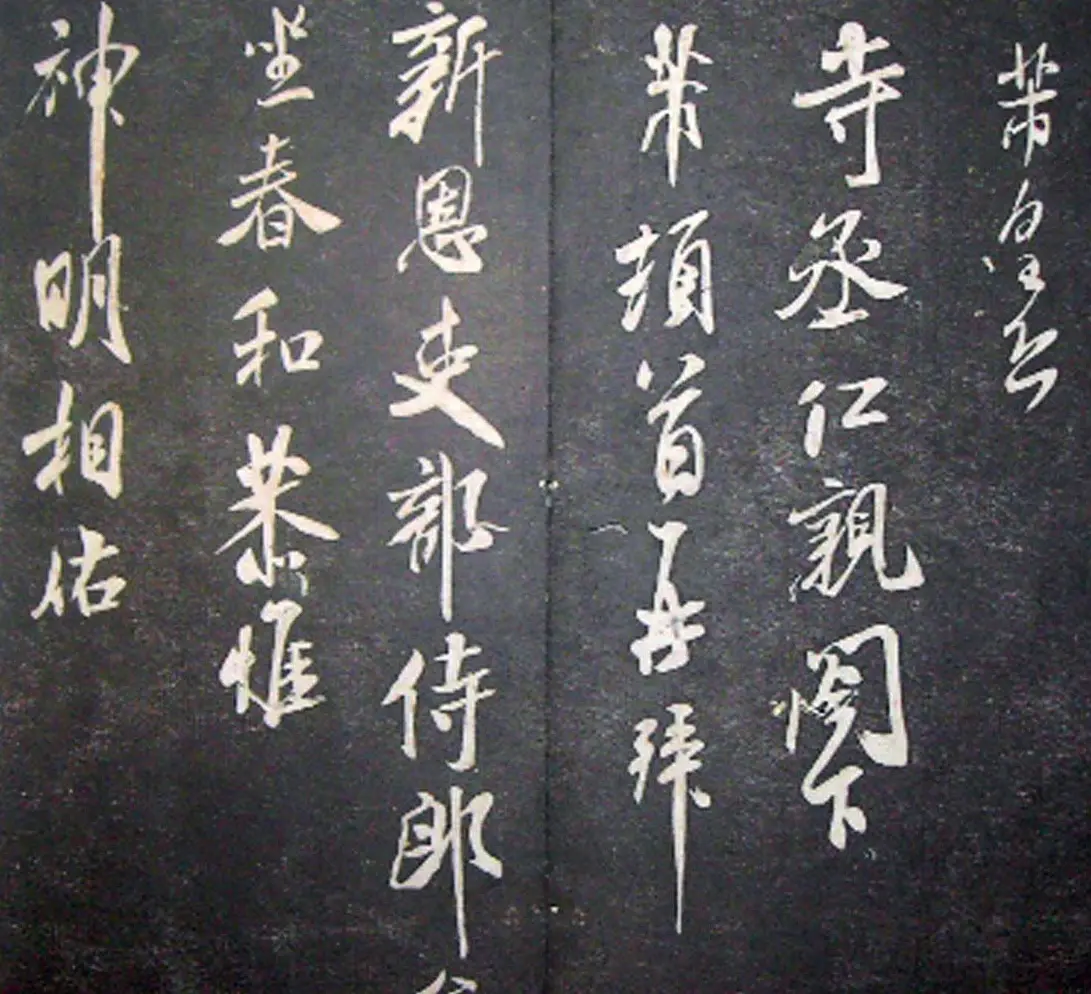 芾皇恐
寺丞仁親閣下
芾頓首再拜
新恩吏部侍郎
坐春和恭惟
神明相佑